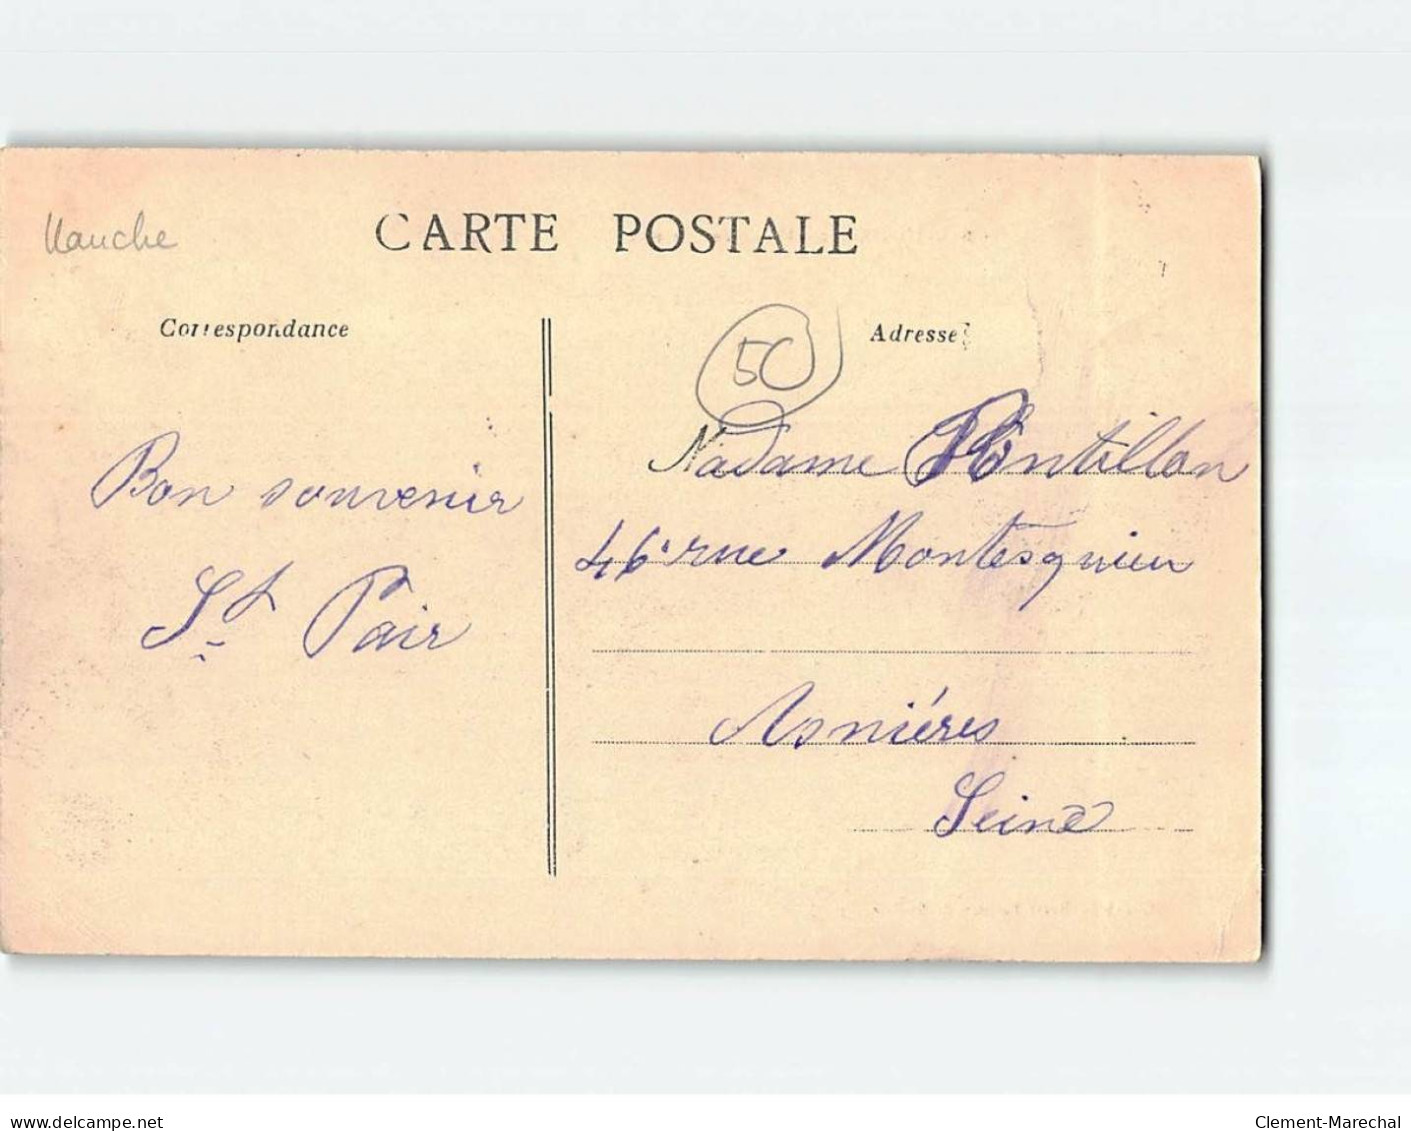 Manche
CARTE POSTALE
Correspondance
Adresse
50
Bon souvenir
St Pair
Madame
46 rue Montesquieu
Asniéres
Seine
www.delcampe.net
Clement-Marechal